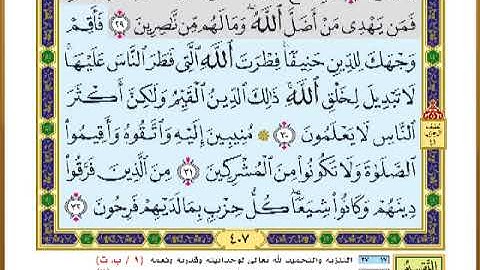 فَمَن يَهْدِى مَنْ أَضَلَّ ٱللَّهُ ۖ وَمَا لَهُم مِّن نَّٰصِرِينَ ﴿٢٩﴾ فَأَقِمْ
وَجْهَكَ لِلدِّينِ حَنِيفًا ۚ فِطْرَتَ ٱللَّهِ ٱلَّتِى فَطَرَ ٱلنَّاسَ عَلَيْهَا ۚ
لَا تَبْدِيلَ لِخَلْقِ ٱللَّهِ ۚ ذَٰلِكَ ٱلدِّينُ ٱلْقَيِّمُ وَلَٰكِنَّ أَكْثَرَ
ٱلنَّاسِ لَا يَعْلَمُونَ ﴿٣٠﴾ ۞ مُنِيبِينَ إِلَيْهِ وَٱتَّقُوهُ وَأَقِيمُوا۟
ٱلصَّلَوٰةَ وَلَا تَكُونُوا۟ مِنَ ٱلْمُشْرِكِينَ ﴿٣١﴾ مِنَ ٱلَّذِينَ فَرَّقُوا۟
دِينَهُمْ وَكَانُوا۟ شِيَعًا ۖ كُلُّ حِزْبٍۭ بِمَا لَدَيْهِمْ فَرِحُونَ ﴿٣٢﴾
٤٠٧
١٧ ٢٧ التنزيه والتحميد لله تعالى لوحدانيته وقدرته ونعمه (١ / ب، ث)